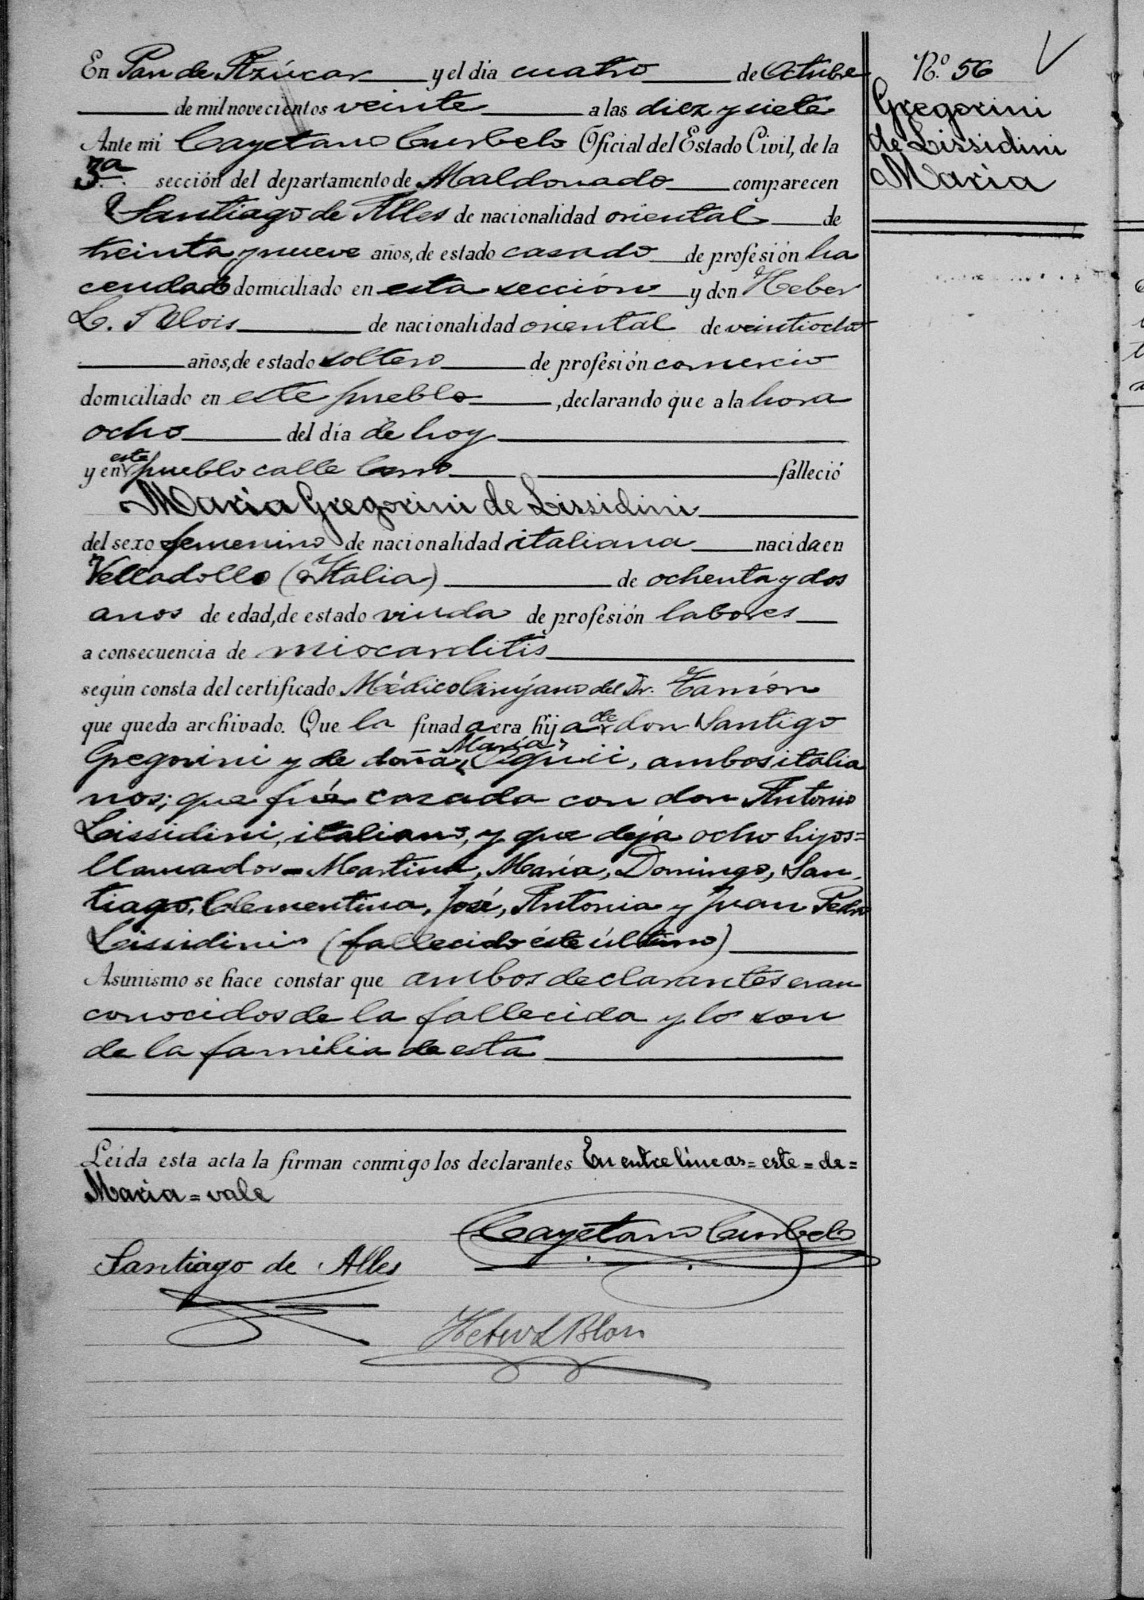 En Pan de Azúcar y el día cuatro de Octubre
de mil novecientos veinte a las diez y siete
Ante mi Cayetano Curbelo Oficial del Estado Civil, de la
3ª sección del departamento de Maldonado comparecen
Santiago de Alles de nacionalidad oriental de
treinta y nueve años, de estado casado de profesión ha
cendado domiciliado en esta sección y don Heber
L. de nacionalidad oriental de veintiocho
años, de estado soltero de profesión comercio
domiciliado en este pueblo, declarando que a la hora
ocho del día de hoy
y en este pueblo calle falleció
María Gregorini de Lissidini
del sexo femenino de nacionalidad italiana nacida en
Velladollo (Italia) de ochenta y dos
anos de edad, de estado viuda de profesión labores
a consecuencia de miocarditis
según consta del certificado Médico Cirujano del Dr.
que queda archivado. Que la finada era hija de don Santigo
Gregorini y de doña María, ambos italia
nos; que fué casada con don Antonio
Lissidini, italiano, y que deja ocho hijos=
llamados = Martina, María, Domingo, San-
tiago, Clementina, José, Antonia y Juan Pedro
Lissidini (fallecido éste último)
Asimismo se hace constar que ambos declarantes eran
conocidos de la fallecida y lo son
de la familia de esta
Leída esta acta la firman conmigo los declarantes En entre líneas = este = de =
María = vale
Cayetano Curbelo
Santiago de Alles
Nº 56
Gregorini
de Lissidini
Maria